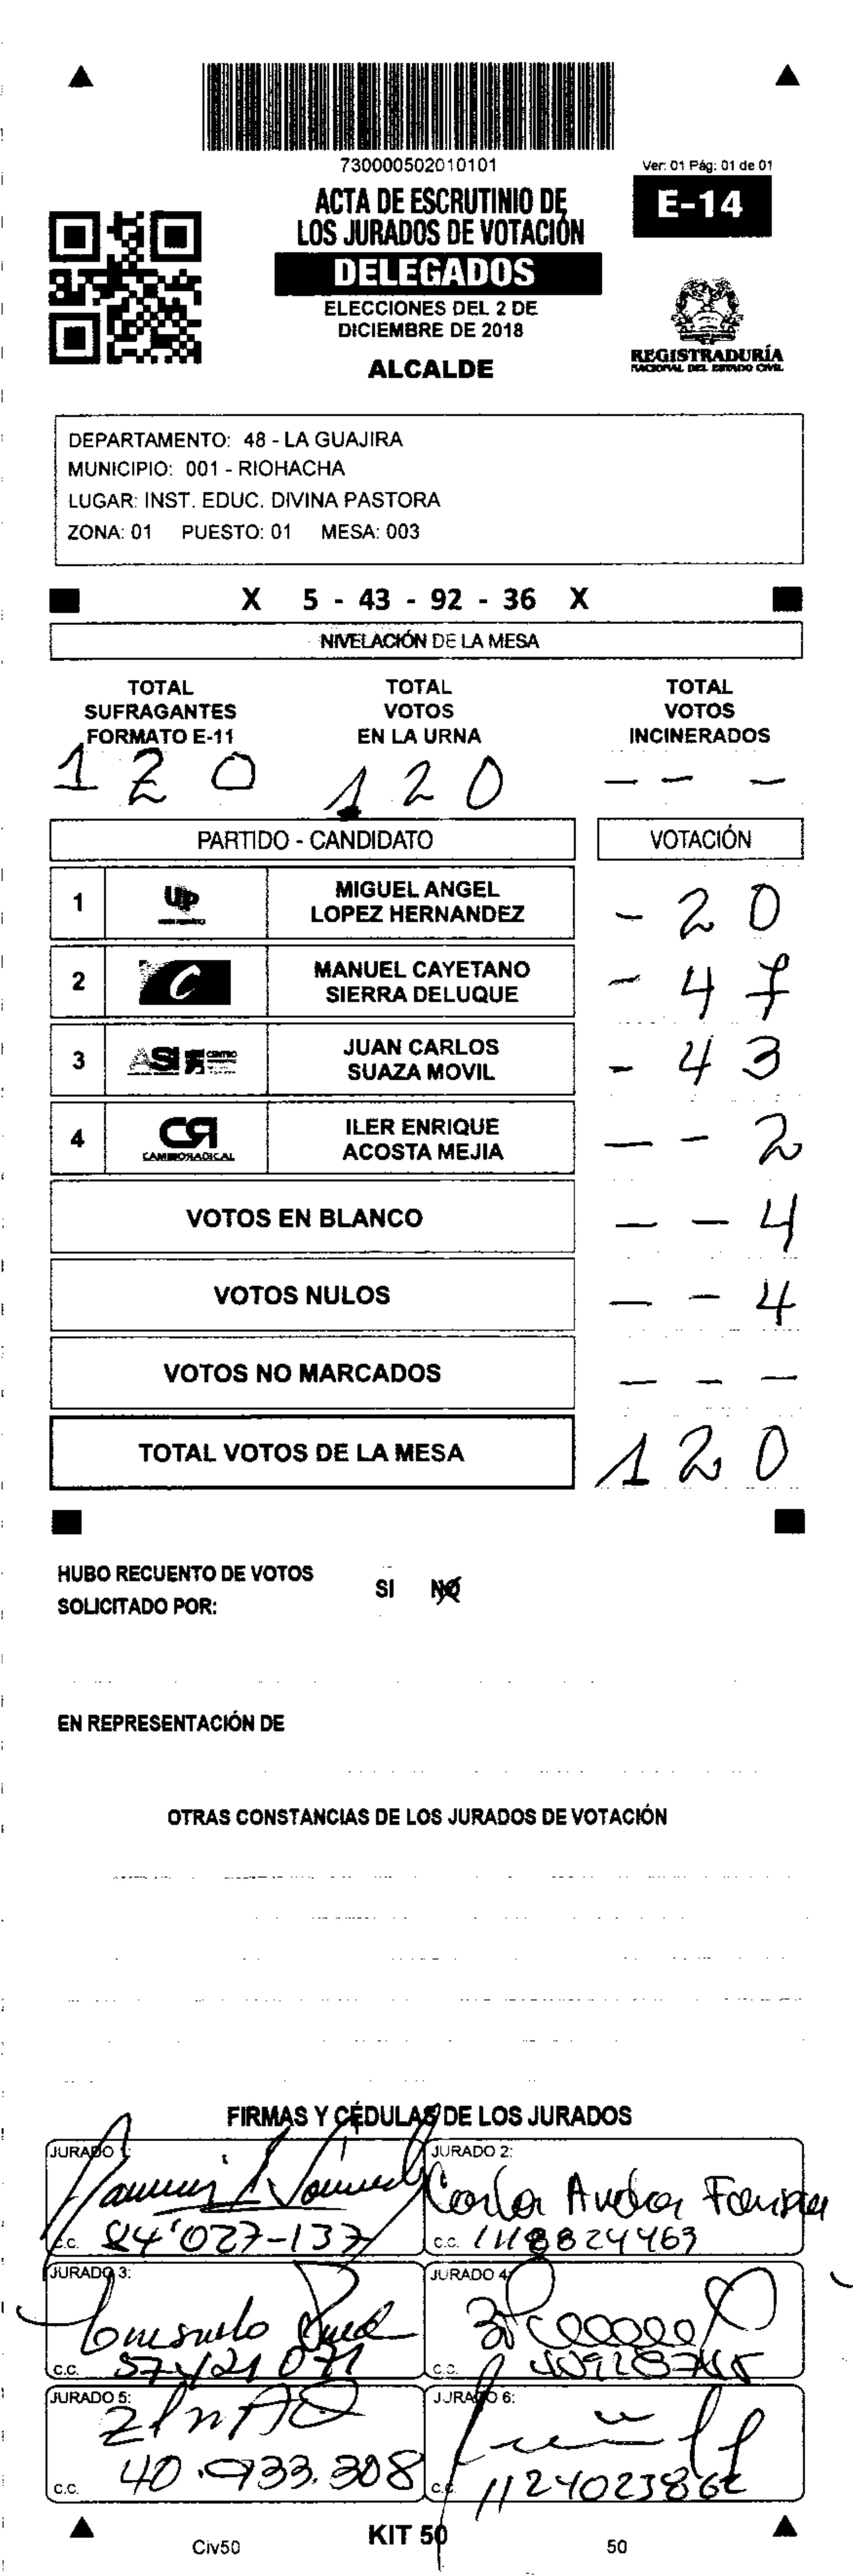 730000502010101
Ver: 01 Pág: 01 de 01
ACTA DE ESCRUTINIO DE
LOS JURADOS DE VOTACIÓN
E-14
DELEGADOS
ELECCIONES DEL 2 DE
DICIEMBRE DE 2018
ALCALDE
REGISTRADURÍA
NACIONAL DEL ESTADO CIVIL
DEPARTAMENTO: 48 - LA GUAJIRA
MUNICIPIO: 001 - RIOHACHA
LUGAR: INST. EDUC. DIVINA PASTORA
ZONA: 01 PUESTO: 01 MESA: 003
X 5 - 43 - 92 - 36 X
NIVELACIÓN DE LA MESA
TOTAL SUFRAGANTES FORMATO E-11
TOTAL VOTOS EN LA URNA
TOTAL VOTOS INCINERADOS
120 120 - - -
PARTIDO - CANDIDATO VOTACIÓN
1 UP MIGUEL ANGEL LOPEZ HERNANDEZ - 20
2 C MANUEL CAYETANO SIERRA DELUQUE - 47
3 ASI CENTRO JUAN CARLOS SUAZA MOVIL - 43
4 CR CAMBIO RADICAL ILER ENRIQUE ACOSTA MEJIA - - 2
VOTOS EN BLANCO - - 4
VOTOS NULOS - - 4
VOTOS NO MARCADOS - - -
TOTAL VOTOS DE LA MESA 120
HUBO RECUENTO DE VOTOS SI NO
SOLICITADO POR:
EN REPRESENTACIÓN DE
OTRAS CONSTANCIAS DE LOS JURADOS DE VOTACIÓN
FIRMAS Y CÉDULAS DE LOS JURADOS
JURADO 1:
C.C. 84'027-137
JURADO 2:
Carlos Andres
C.C. 1118824463
JURADO 3:
Consuelo
C.C.
JURADO 4:
C.C.
JURADO 5:
C.C. 40.933.308
JURADO 6:
C.C. 1124023862
Civ50
KIT 50
50